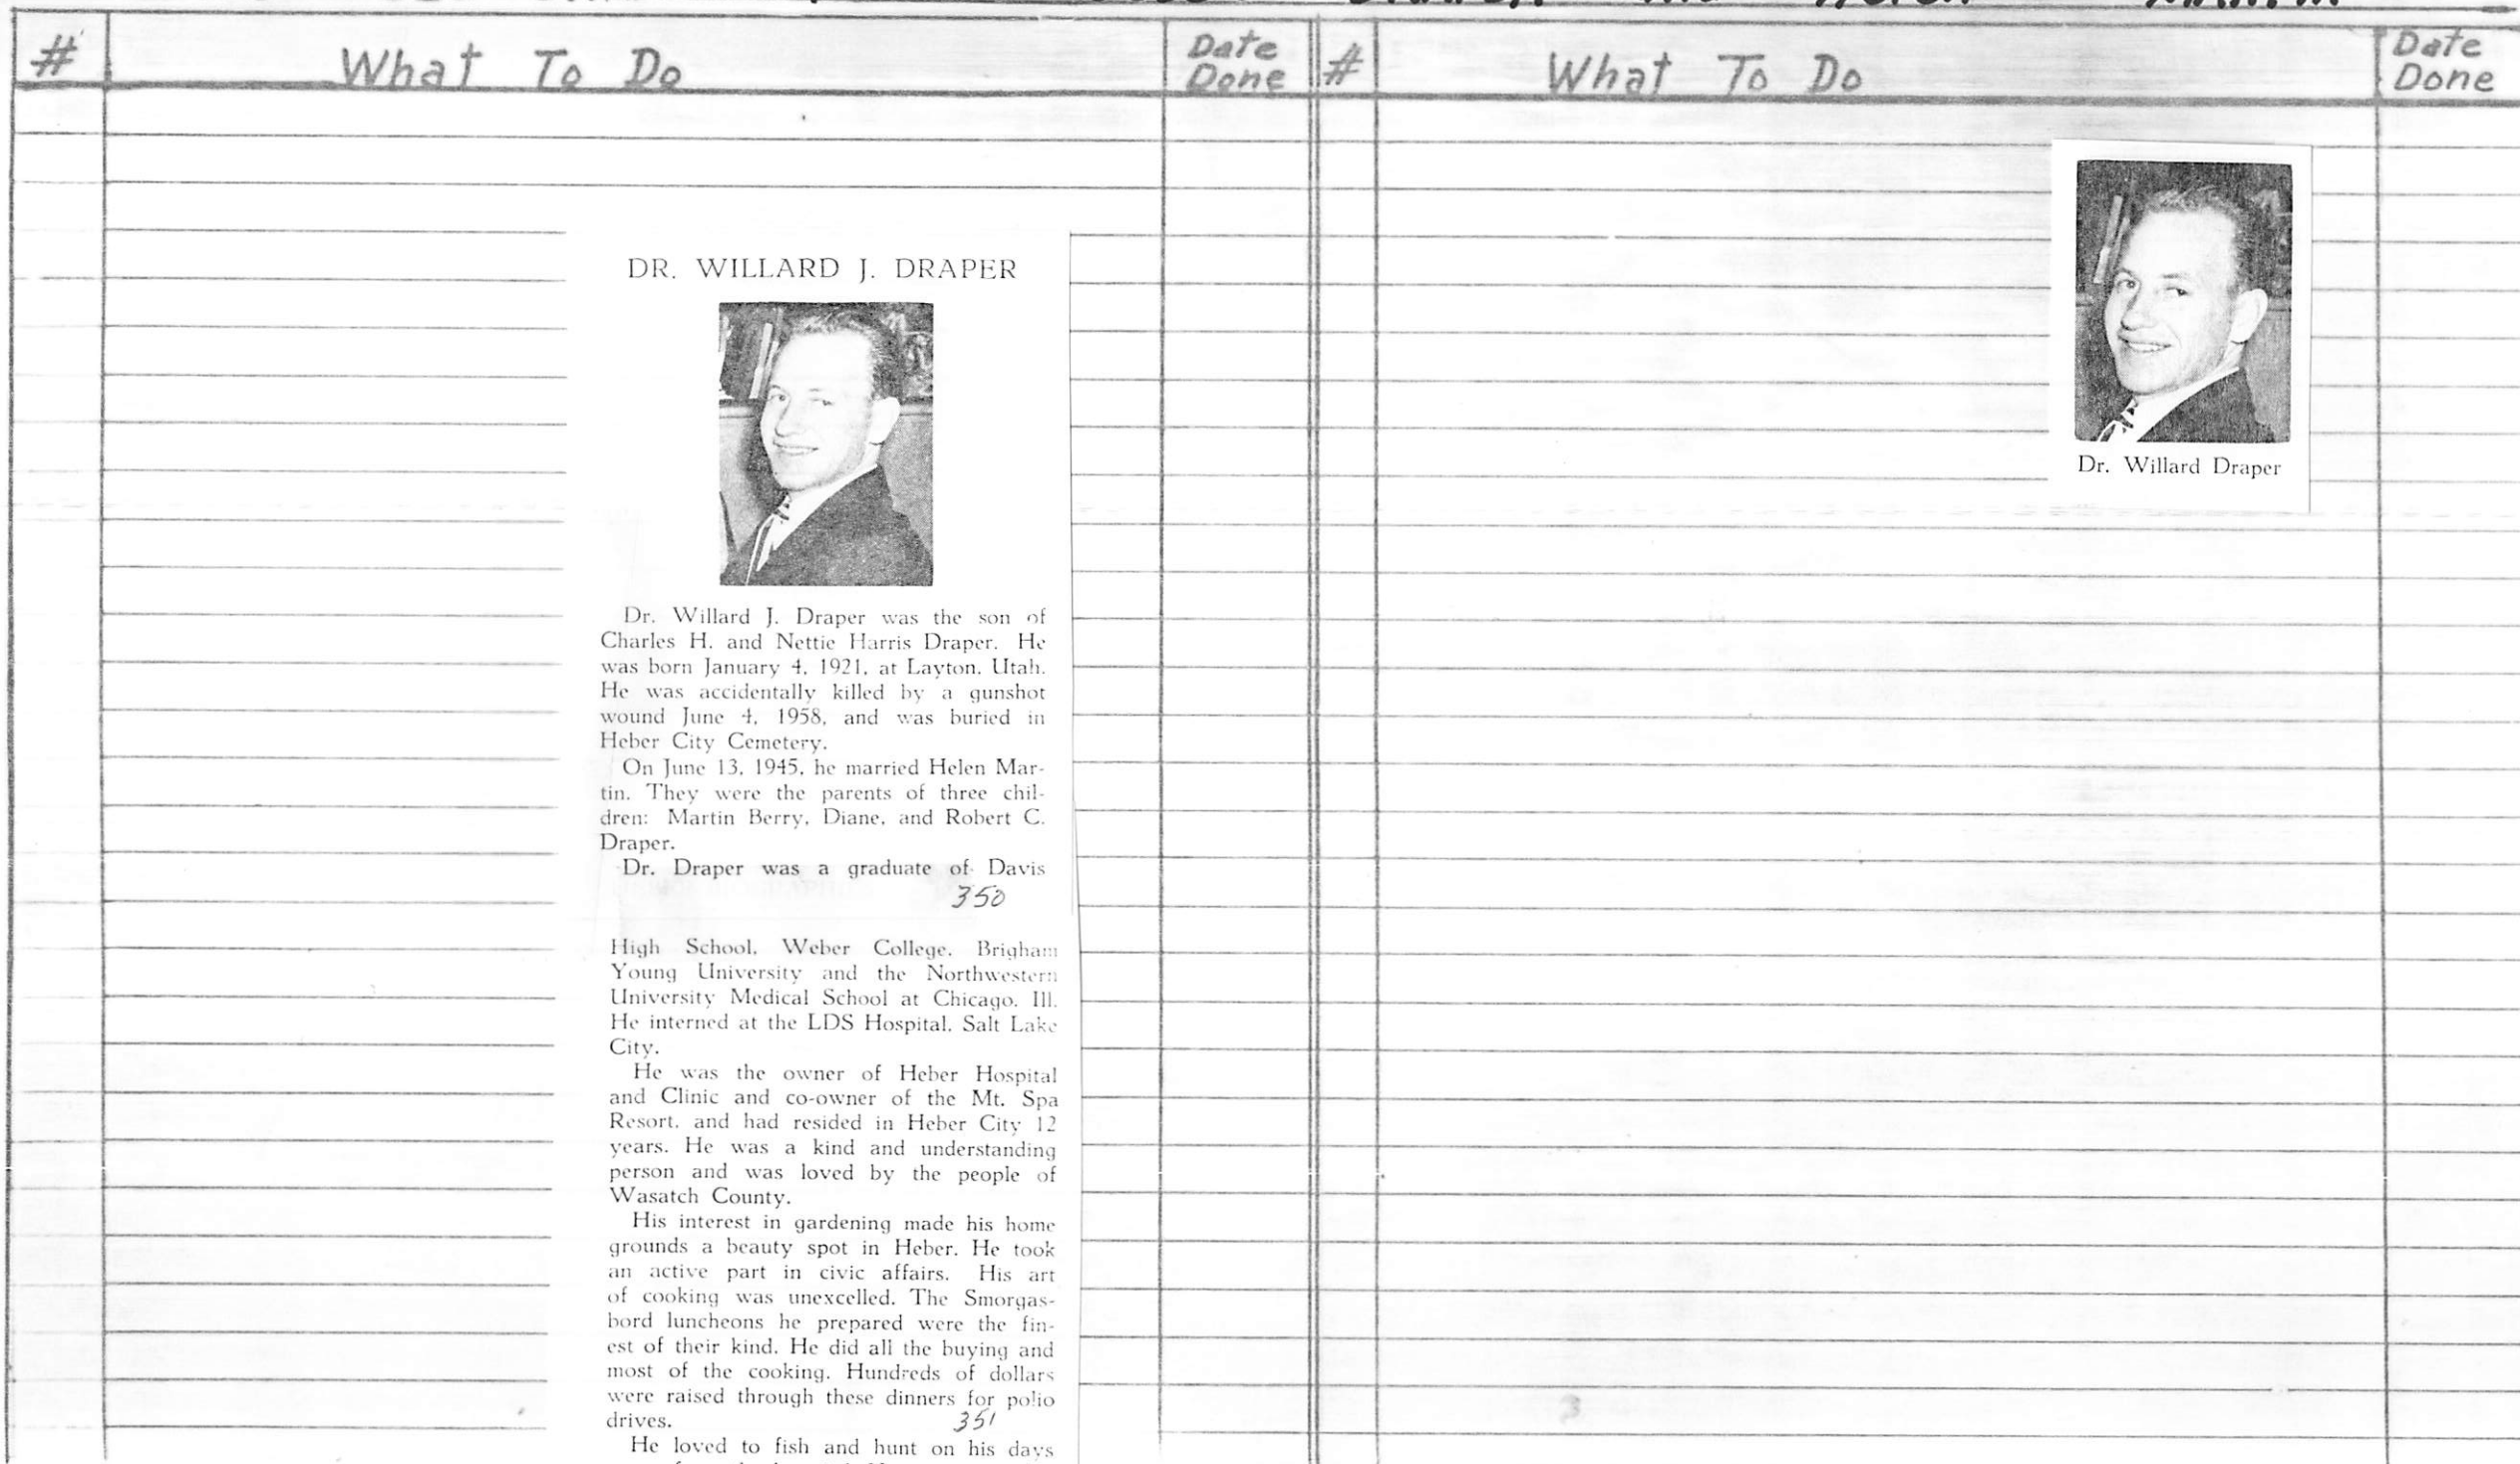 Helen
# What To Do Date Done # What To Do Date Done
DR. WILLARD J. DRAPER
Dr. Willard J. Draper was the son of
Charles H. and Nettie Harris Draper. He
was born January 4, 1921, at Layton, Utah.
He was accidentally killed by a gunshot
wound June 4, 1958, and was buried in
Heber City Cemetery.
On June 13, 1945, he married Helen Mar-
tin. They were the parents of three chil-
dren: Martin Berry, Diane, and Robert C.
Draper.
Dr. Draper was a graduate of Davis
350
High School, Weber College, Brigham
Young University and the Northwestern
University Medical School at Chicago, Ill.
He interned at the LDS Hospital, Salt Lake
City.
He was the owner of Heber Hospital
and Clinic and co-owner of the Mt. Spa
Resort, and had resided in Heber City 12
years. He was a kind and understanding
person and was loved by the people of
Wasatch County.
His interest in gardening made his home
grounds a beauty spot in Heber. He took
an active part in civic affairs. His art
of cooking was unexcelled. The Smorgas-
bord luncheons he prepared were the fin-
est of their kind. He did all the buying and
most of the cooking. Hundreds of dollars
were raised through these dinners for polio
drives.
351
He loved to fish and hunt on his days
Dr. Willard Draper